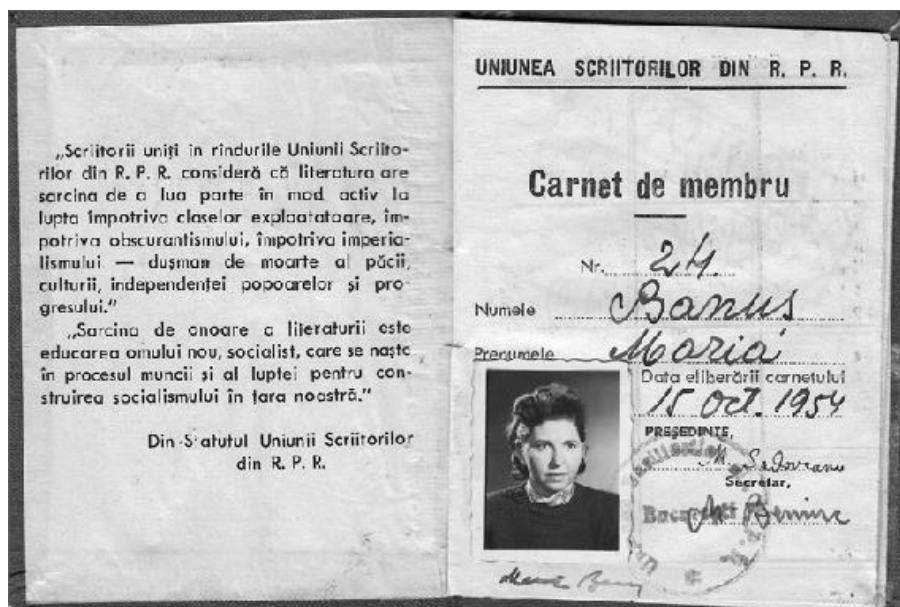 „Scriitorii uniți în rîndurile Uniunii Scriito-
rilor din R. P. R. consideră că literatura are
sarcina de a lua parte în mod activ la
lupta împotriva claselor exploatatoare, îm-
potriva obscurantismului, împotriva imperia-
lismului — dușman de moarte al păcii,
culturii, independenței popoarelor și pro-
gresului.”
„Sarcina de onoare a literaturii este
educarea omului nou, socialist, care se naște
în procesul muncii și al luptei pentru con-
struirea socialismului în țara noastră.”
Din Statutul Uniunii Scriitorilor
din R. P. R.
UNIUNEA SCRIITORILOR DIN R. P. R.
Carnet de membru
Nr. 24
Numele Banuș
Prenumele Maria
Data eliberării carnetului
15 Oct. 1954
PREȘEDINTE,
M. Sadoveanu
Secretar,
București